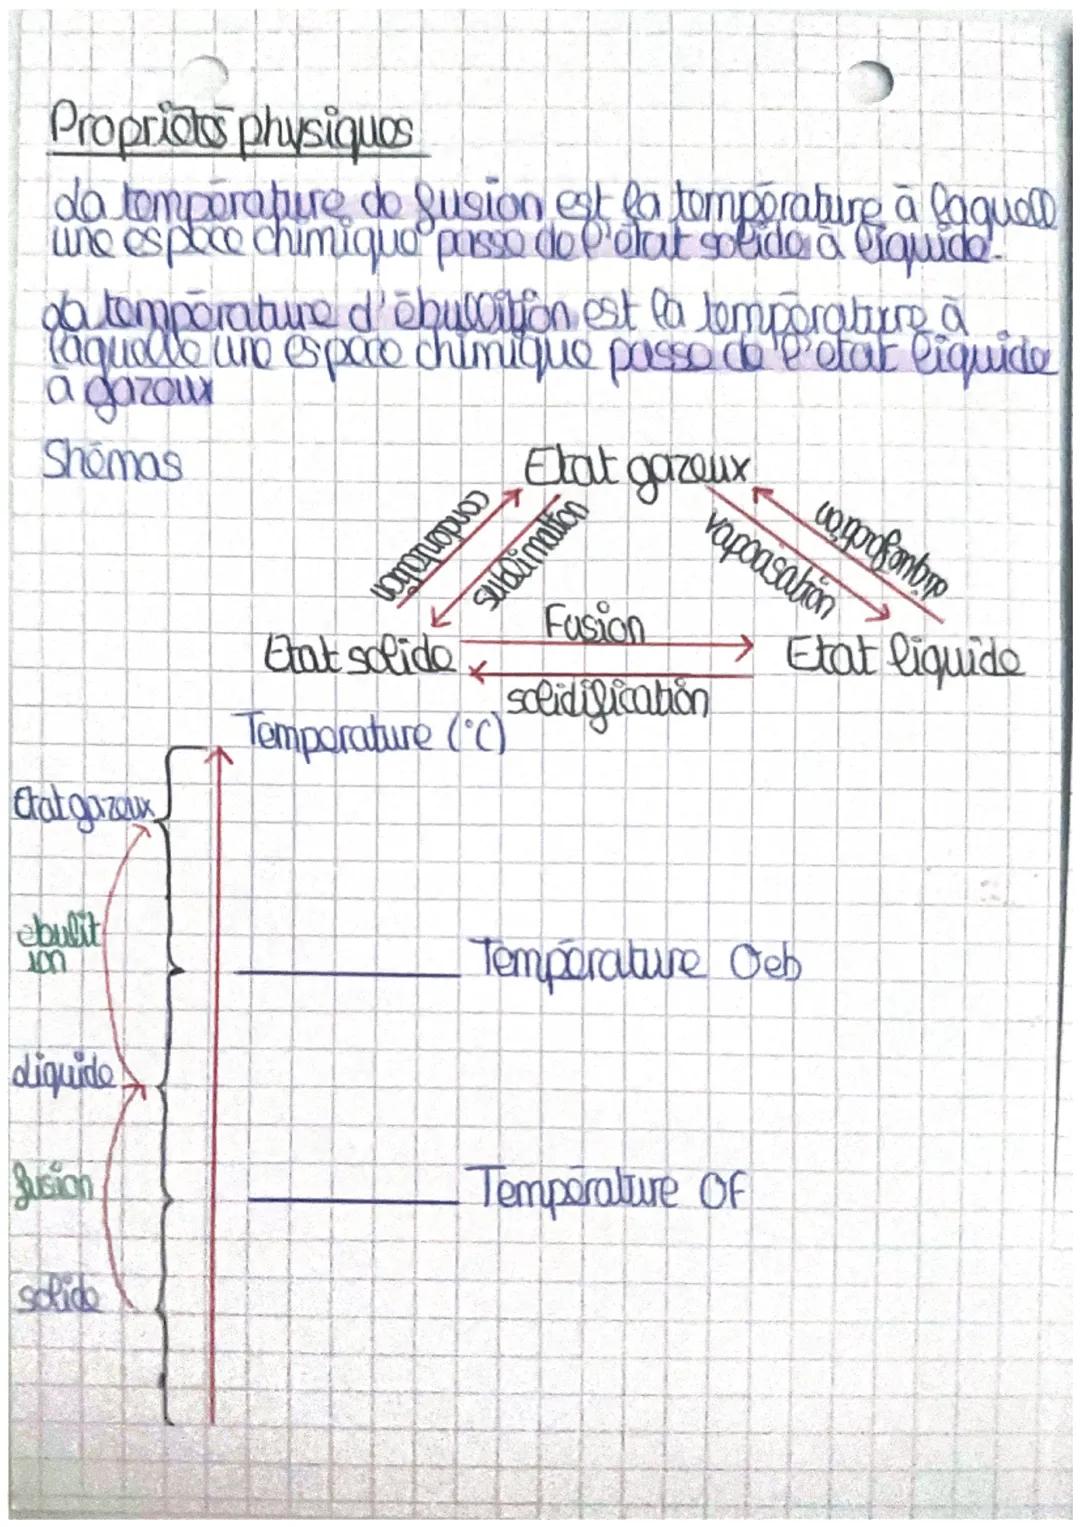 Propriétés physiques
La température de fusion est la température à laquell
une espece chimique passe de l'état solide à liquide.
La température d'ébullition est la température à
laquelle une espece chimique passe de l'etat liquide
a gazeux
Shémas
Etat gazeux
condensation
sublimation
vaporisation
Fusion
Etat solide
Etat liquide
solidification
Temperature (°C)
Etat gazeux
ebulit
ion
Température Oeb
Liquide
fusion
Température OF
solide